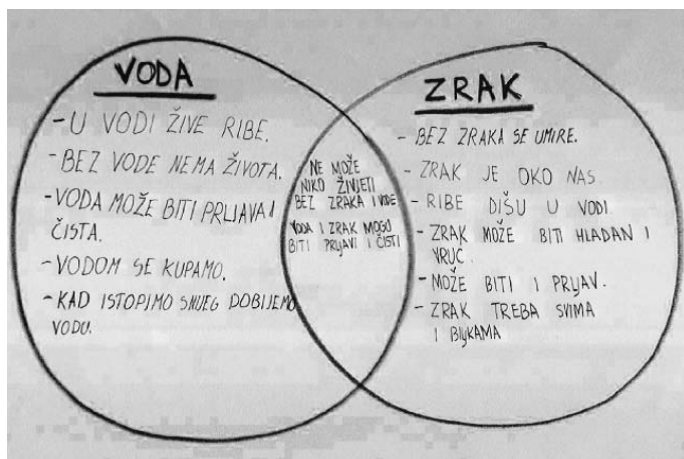 VODA
- U VODI ŽIVE RIBE.
- BEZ VODE NEMA ŽIVOTA.
- VODA MOŽE BITI PRLJAVA I
ČISTA.
- VODOM SE KUPAMO.
- KAD ISTOPIMO SNIJEG DOBIJEMO
VODU.
NE MOŽE
NIKO ŽIVJETI
BEZ ZRAKA I VODE
VODA I ZRAK MOGU
BITI PRLJAVI I ČISTI
ZRAK
- BEZ ZRAKA SE UMIRE.
- ZRAK JE OKO NAS.
- RIBE DIŠU U VODI.
- ZRAK MOŽE BITI HLADAN I
VRUĆ.
- MOŽE BITI I PRLJAV.
- ZRAK TREBA SVIMA
I BILJKAMA